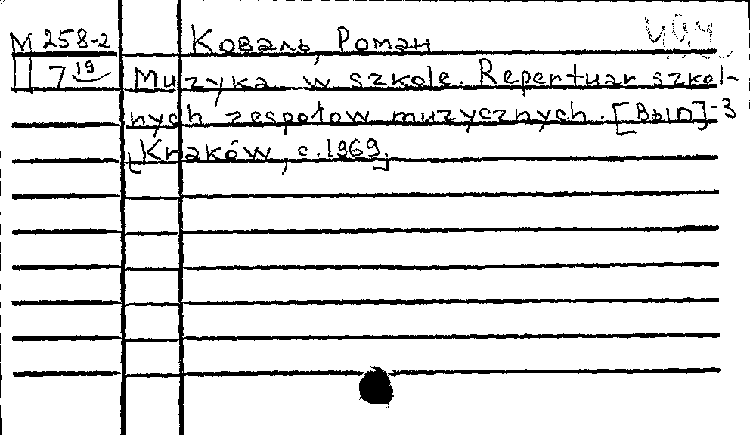 М 258-2 Коваль, Роман
7 19 Muzyka w szkole. Repertuar szkol-
nych zespołow muzycznych. [Вып]-3
[Kraków, c.1969]